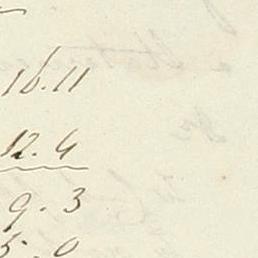 16.11
12.4
9.3
5.0